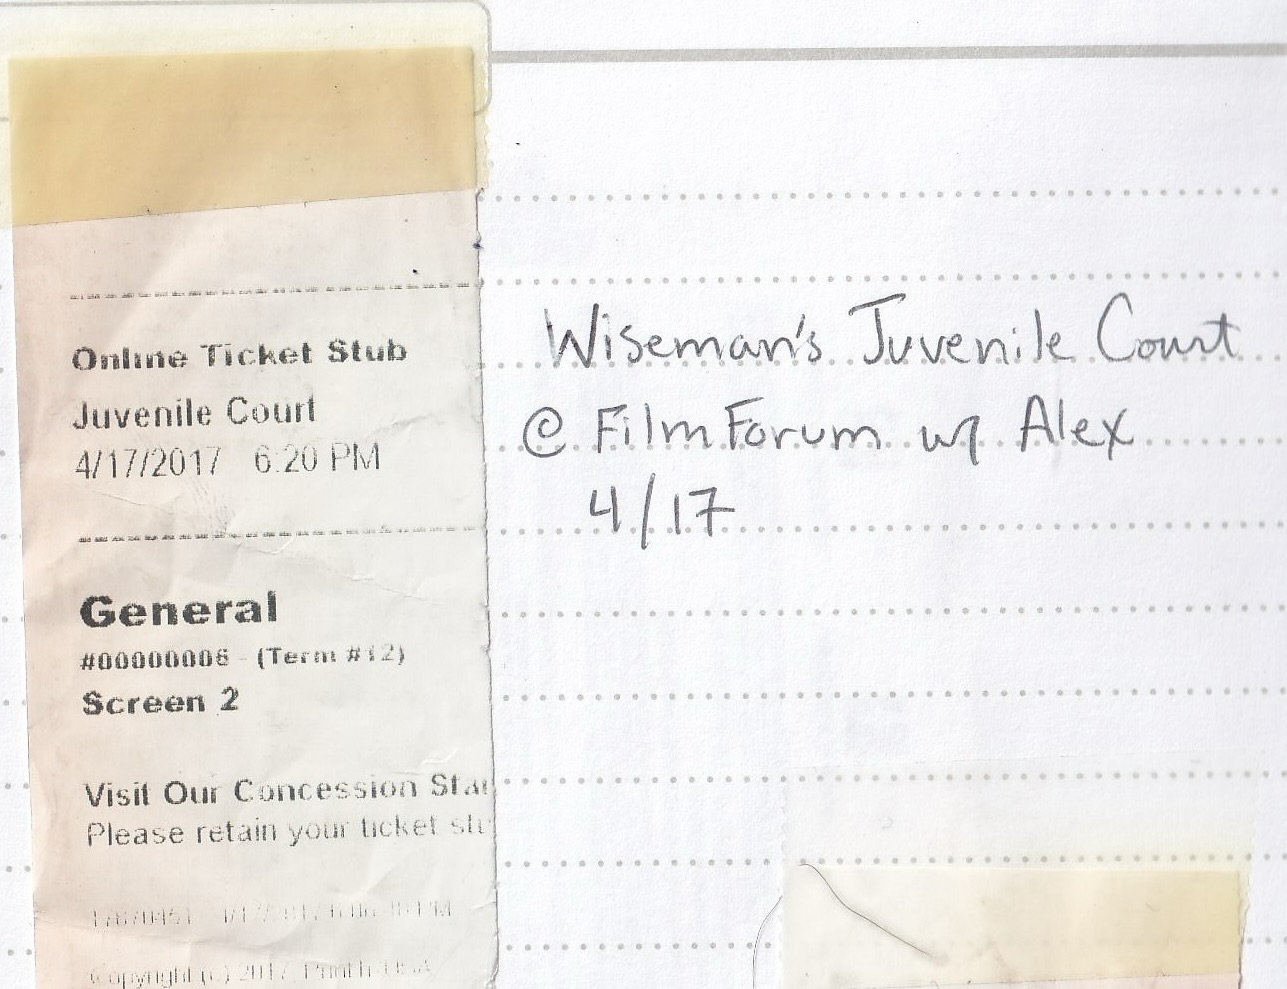 Online Ticket Stub
Juvenile Court
4/17/2017 6:20 PM
General
#00000006 - (Term #12)
Screen 2
Visit Our Concession Sta
Please retain your ticket stu
Copyright (c) 2017
Wiseman's Juvenile Court
@ Film Forum w/ Alex
4/17